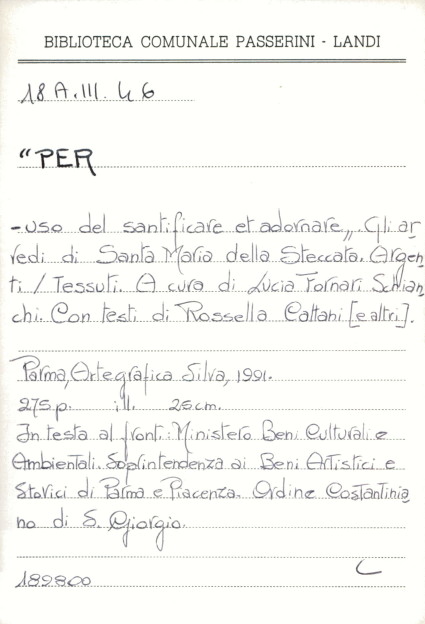 BIBLIOTECA COMUNALE PASSERINI - LANDI
18 A.III. 46
"PER
- uso del santificare et adornare„. Gli ar
redi di Santa Maria della Steccata. Argen
ti / Tessuti. A cura di Lucia Fornari Schian
chi. Con testi di Rossella Cattani [e altri].
Parma, Artegrafica Silva, 1991.
275 p. ill. 25 cm.
In testa al front.: Ministero Beni Culturali e
Ambientali. Soprintendenza ai Beni Artistici e
Storici di Parma e Piacenza. Ordine Costantinia
no di S. Giorgio.
189800 C